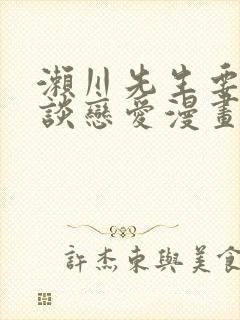 瀨川先生要
談戀愛漫畫
許杰東與美食